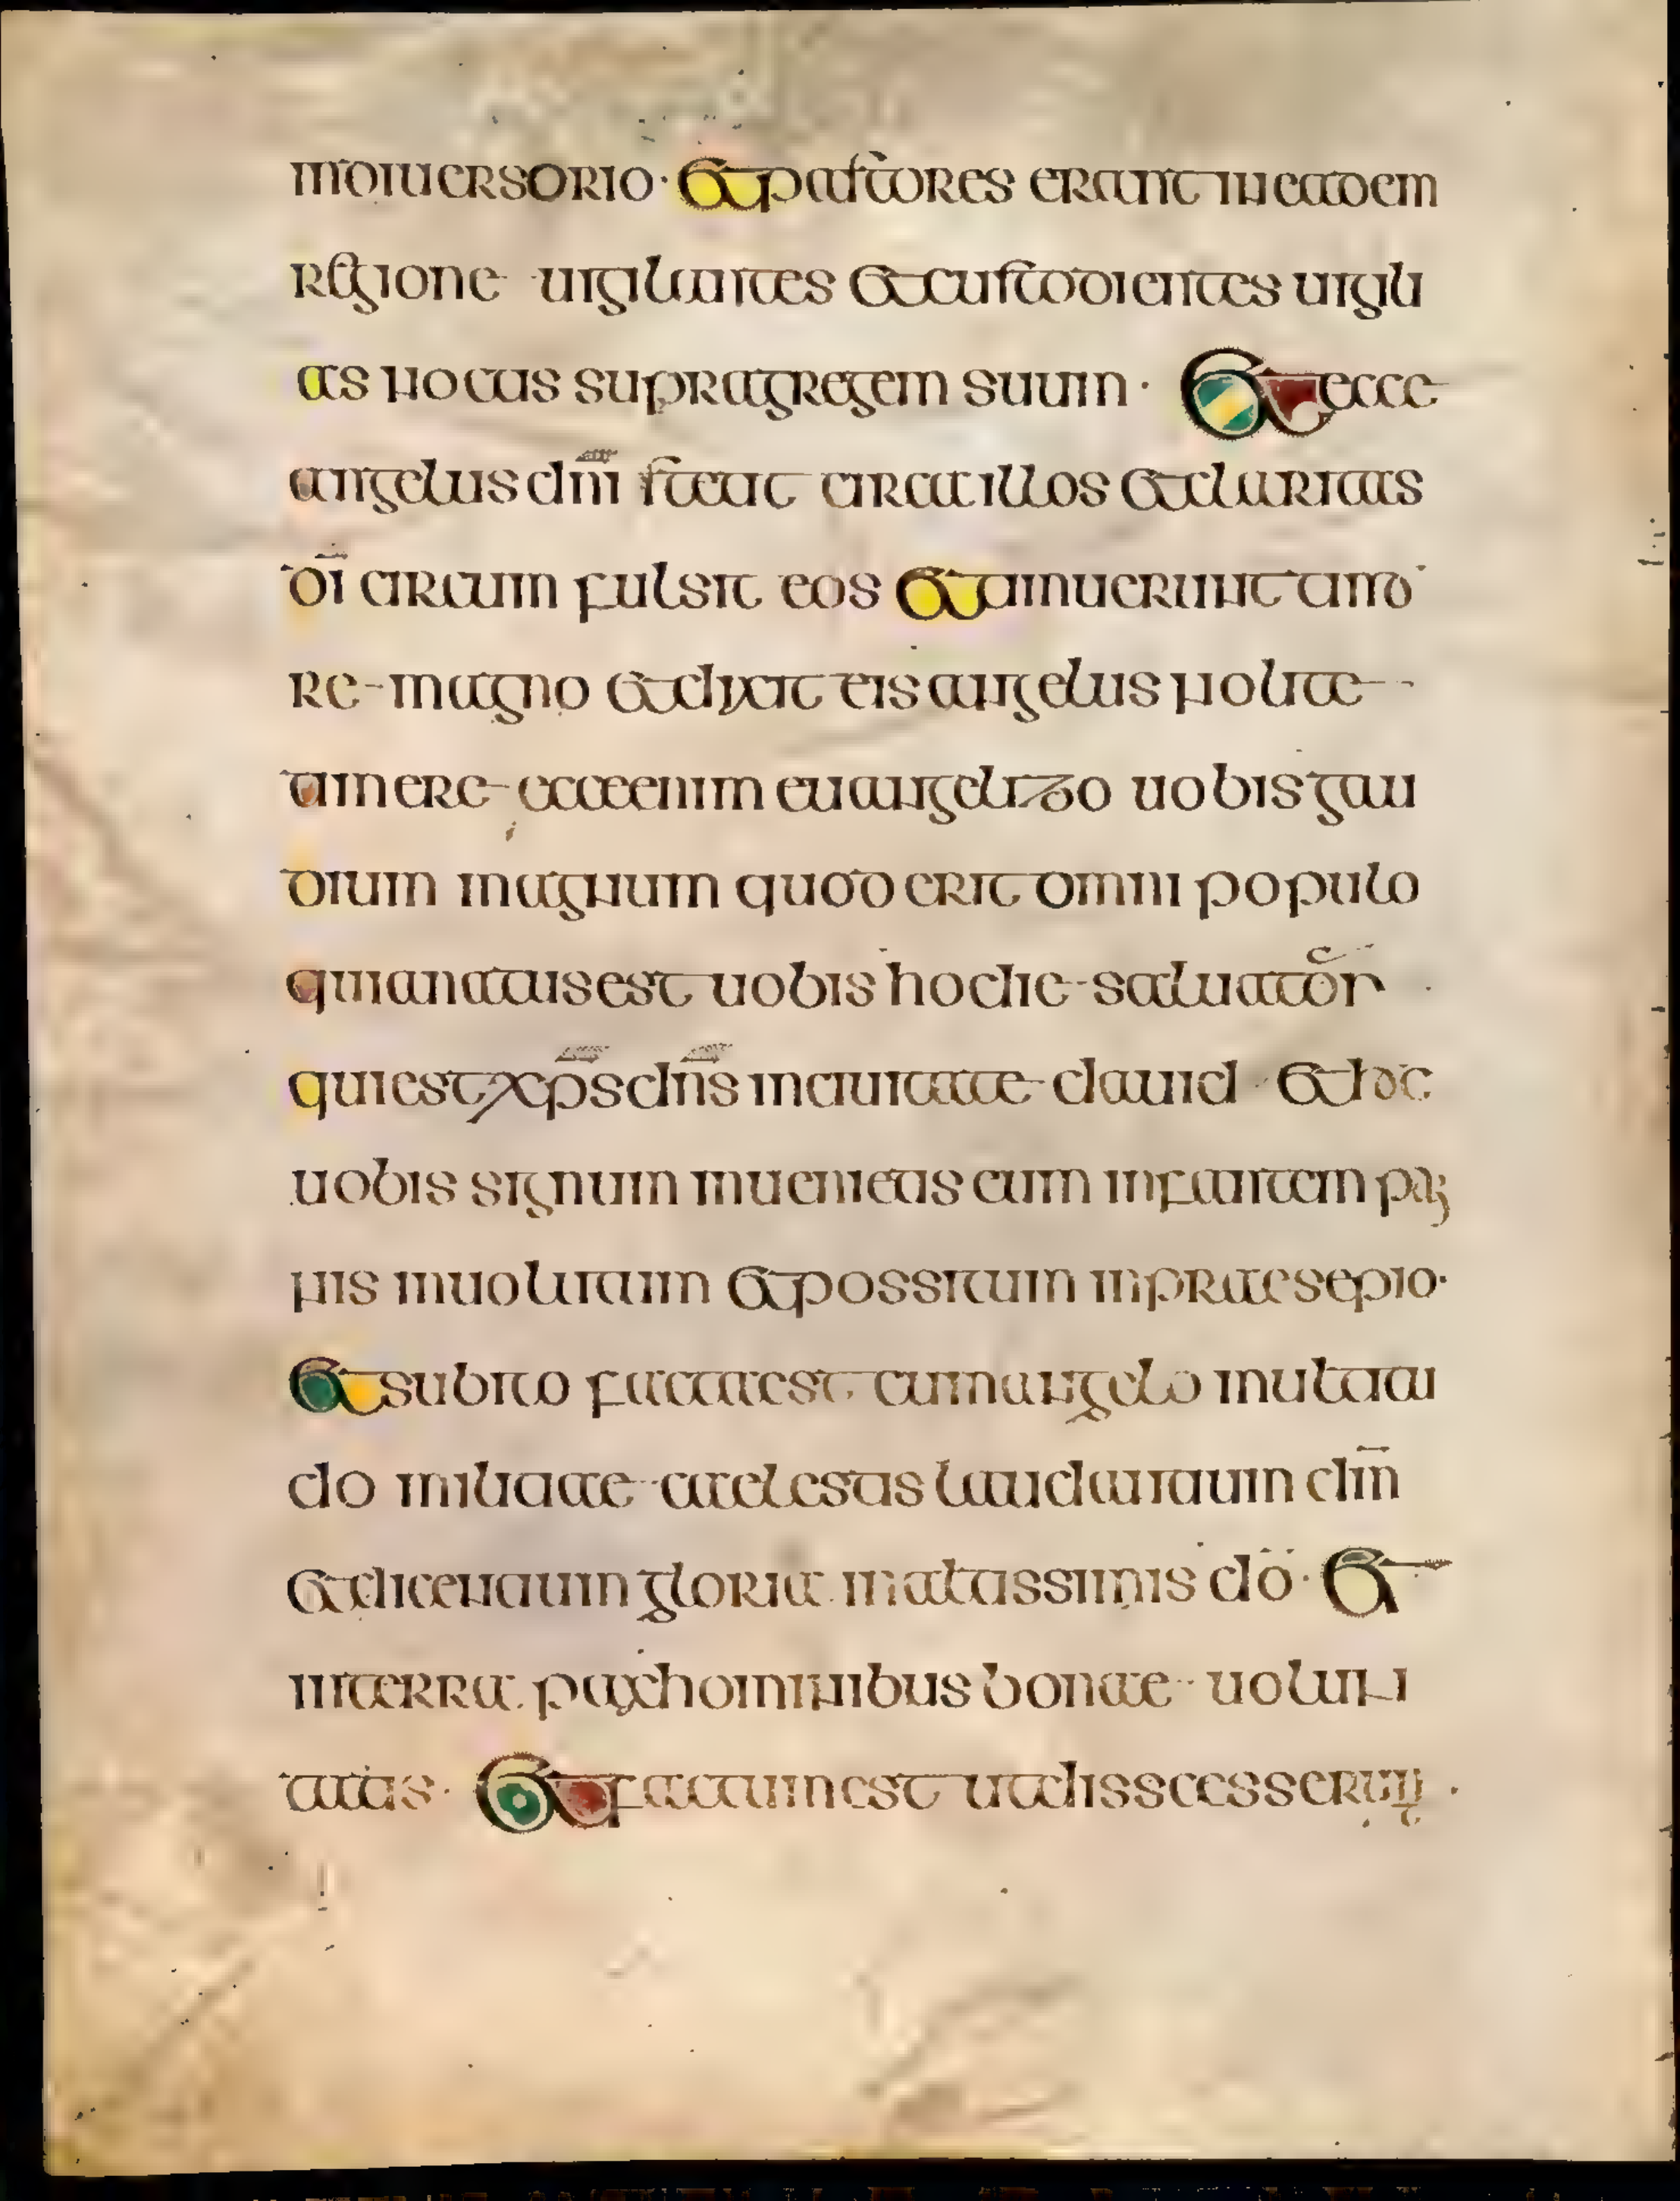 indiuersorio· Et pastores erant in eadem
regione uigilantes et custodientes uigili
as noctis supra gregem suum· Et ecce
angelus dn̄i stetit circa illos et claritas
dī circum fulsit eos et timuerunt timo
re magno et dixit eis angelus nolite
timere ecce enim euangelizo uobis gau
dium magnum quod erit omni populo
quia natus est uobis hodie saluator
qui est xp̄s dn̄s in ciuitate dauid et hoc
uobis signum inuenietis eum infantem pan
nis inuolutum et possitum in praesepio·
Et subito facta est cum angelo multitu
do militiae caelestis laudantium dm̄
et dicentium gloria in altissimis dō· Et
in terra pax hominibus bonae uolun
tatis· Et factum est ut disscesserunt